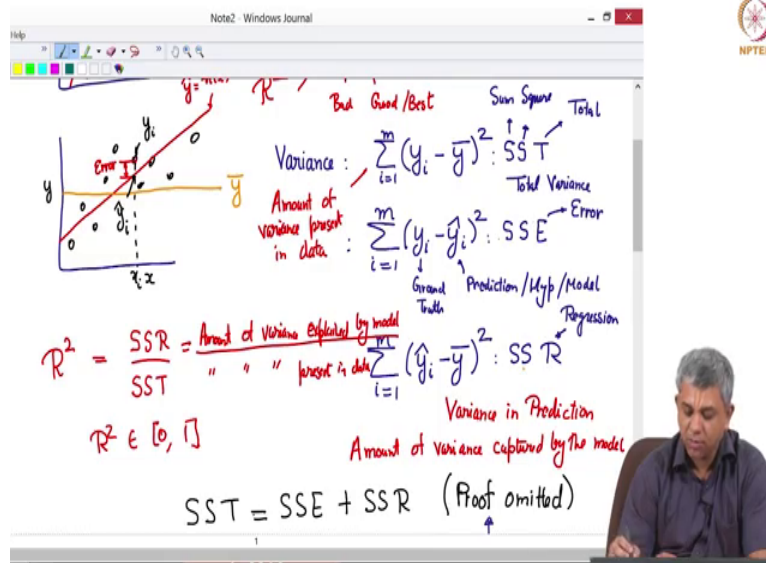 Note2 - Windows Journal
Help
NPTEL
R²
Bad Good/Best
Sum Square
Total
y
yᵢ
Error
ŷᵢ
ȳ
xᵢ x
Variance : ∑ᵢ₌₁ᵐ (yᵢ - ȳ)² : SST
Total Variance
Amount of
variance present
in data
: ∑ᵢ₌₁ᵐ (yᵢ - ŷᵢ)² : SSE
Error
Ground
Truth
Prediction/Hyp/Model
Regression
R² = SSR/SST = Amount of variance explained by model
" " " present in data
∑ᵢ₌₁ᵐ (ŷᵢ - ȳ)² : SSR
R² ∈ [0, 1]
Variance in Prediction
Amount of variance captured by the model
SST = SSE + SSR (Proof omitted)
1